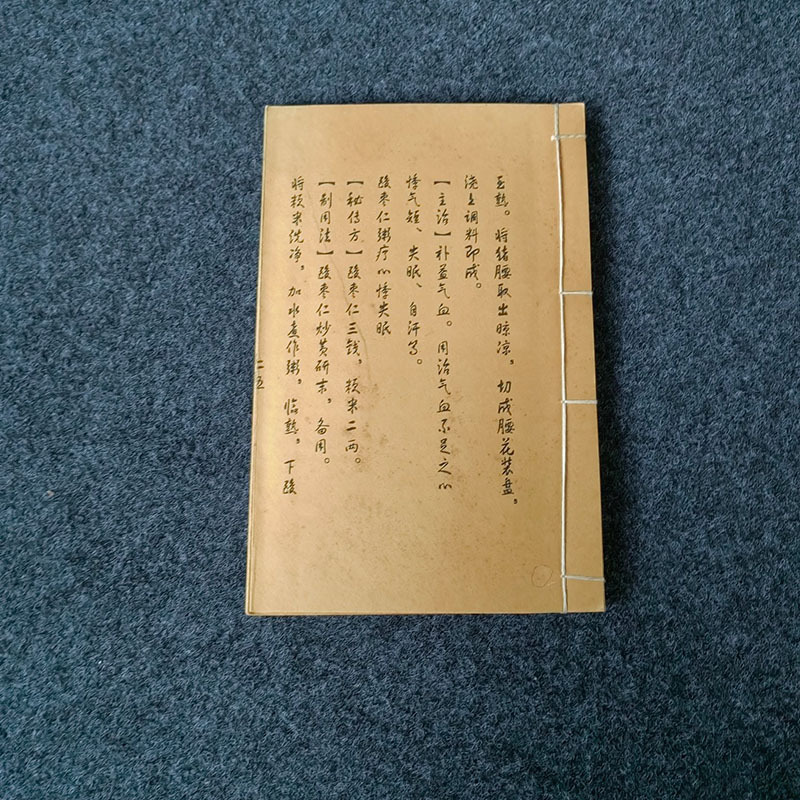 至熟。将猪腰取出晾凉，切成腰花装盘，
浇上调料即成。
【主治】补益气血。用治气血不足之心
悸气短、失眠、自汗等。
酸枣仁粥疗心悸失眠
【秘传方】酸枣仁三钱，粳米二两。
【剂用法】酸枣仁炒黄研末，备用。
将粳米洗净，加水煮作粥，临熟，下酸
二五